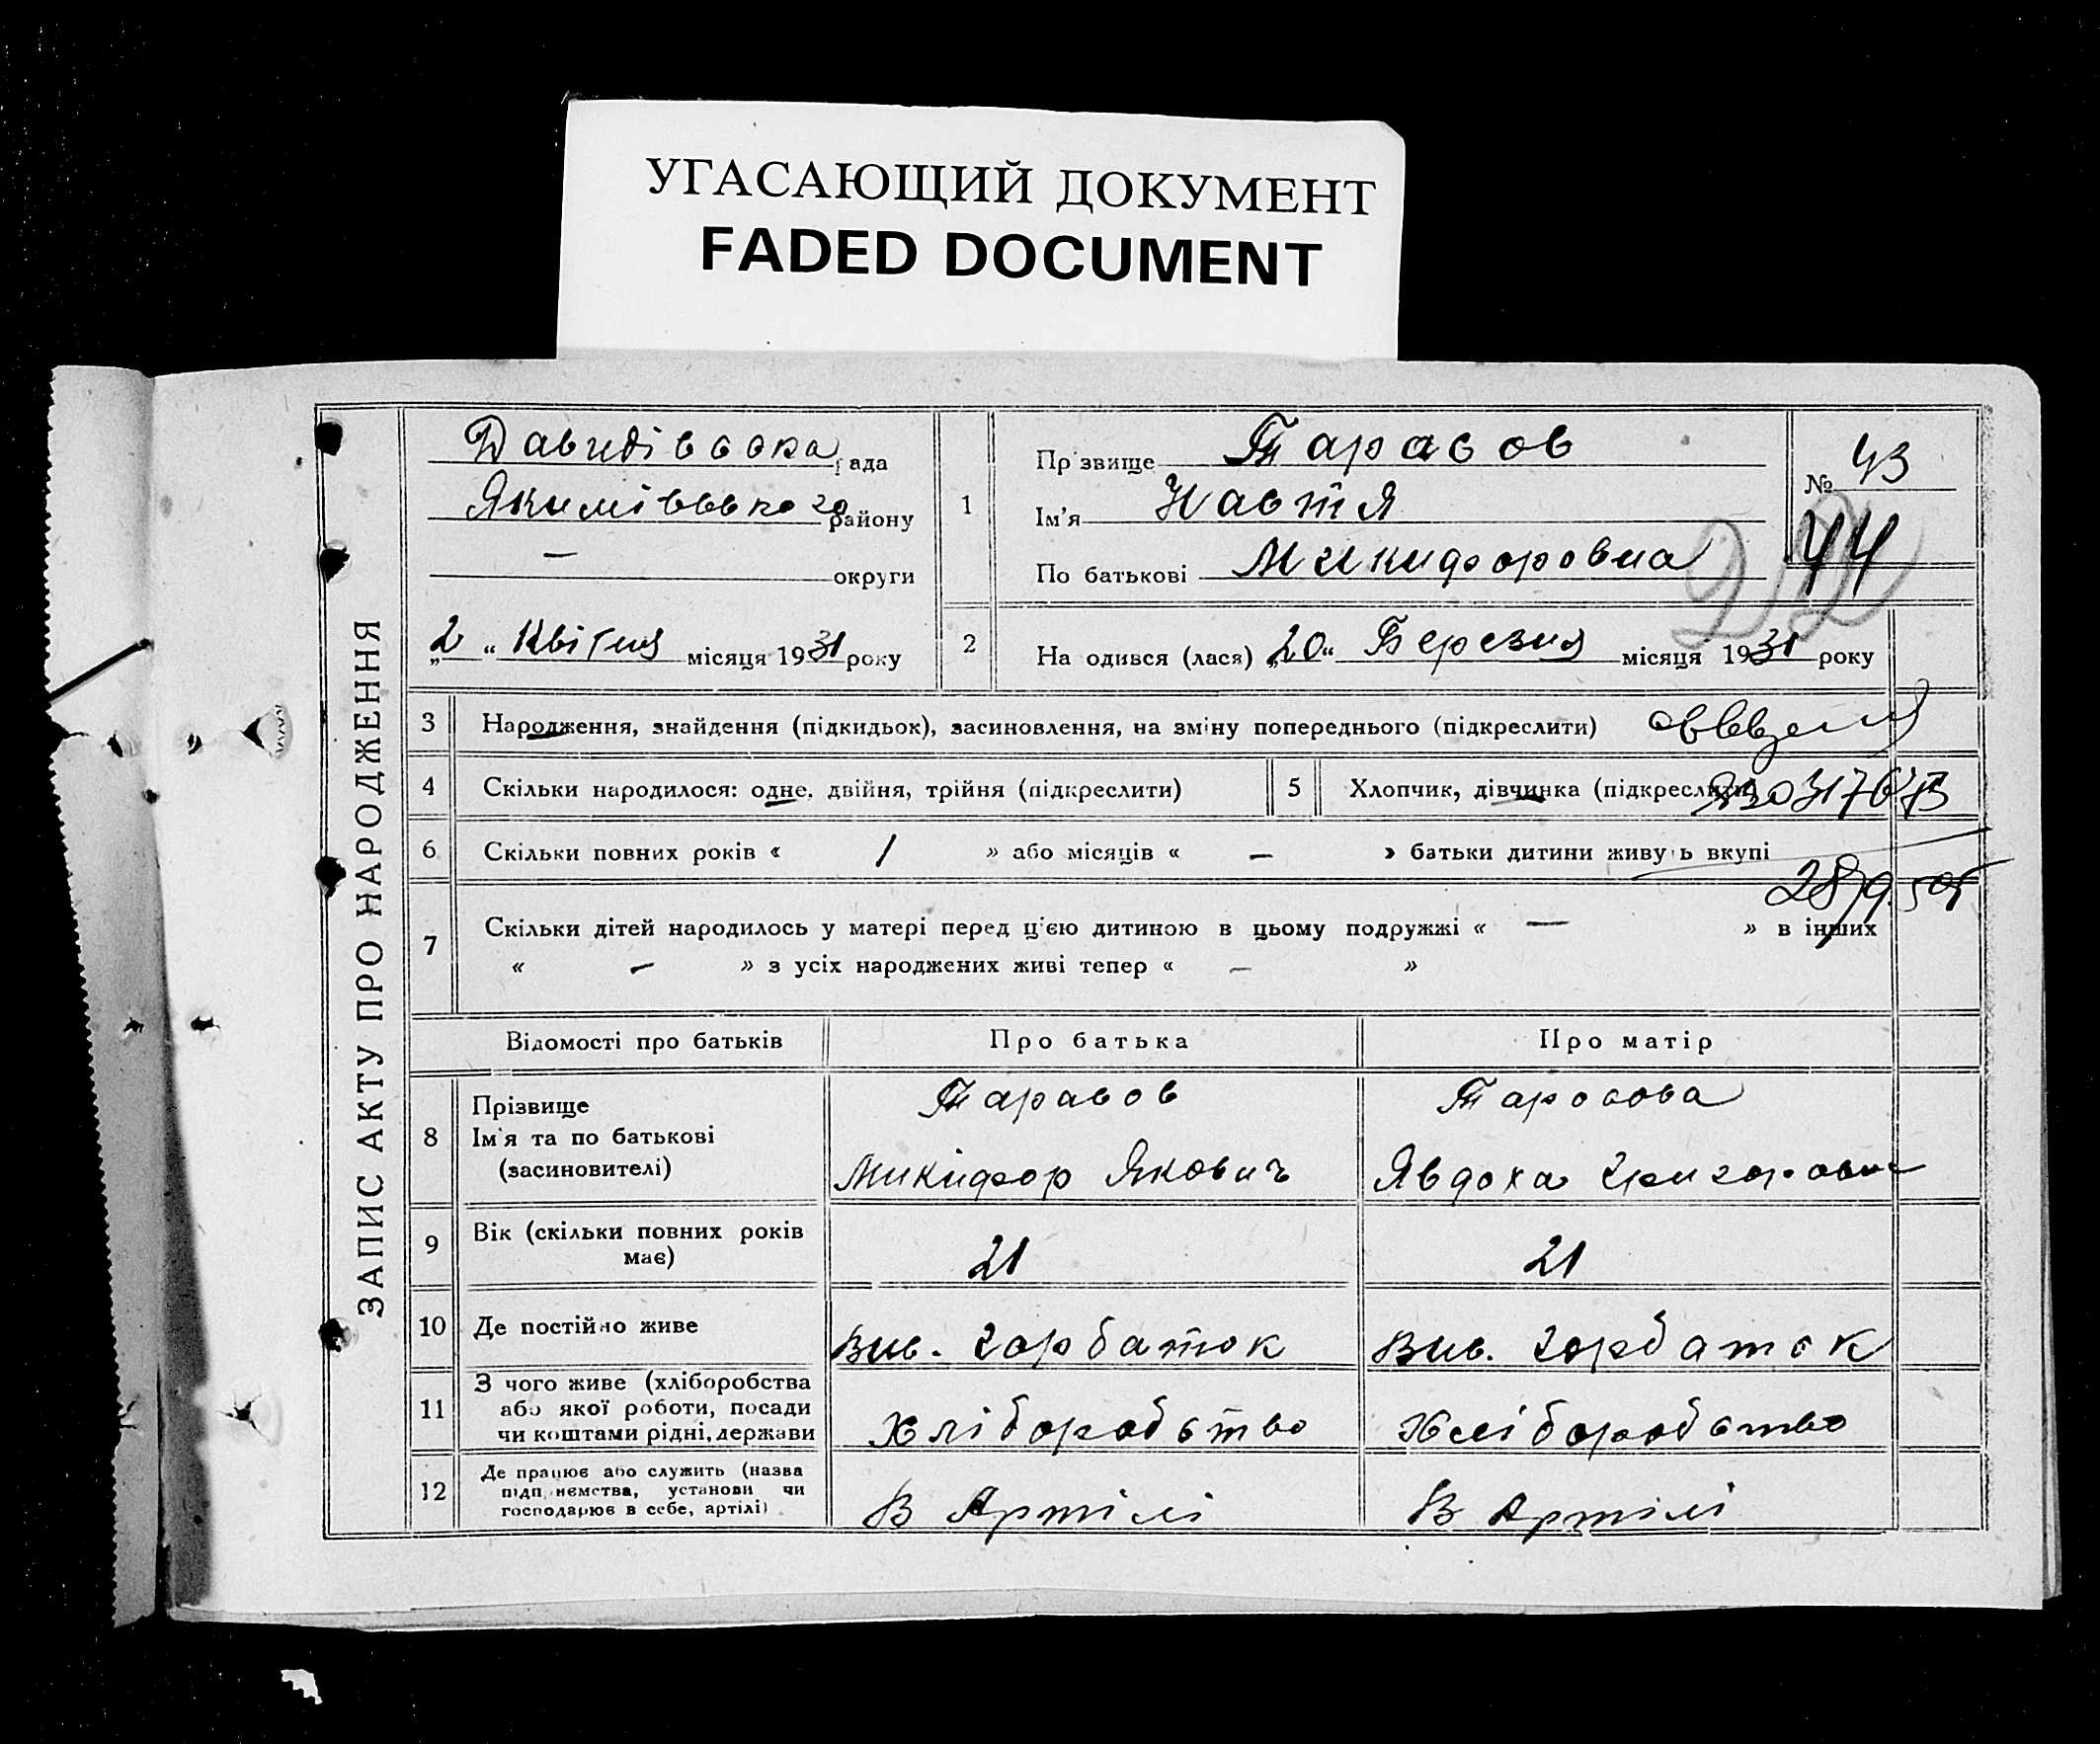 УГАСАЮЩИЙ ДОКУМЕНТ
FADED DOCUMENT
ЗАПИС АКТУ ПРО НАРОДЖЕННЯ
Давидівська рада
Якимівського району
— округи
„2“ Квітня місяця 1931 року
1
Прізвище Тарасов
Ім'я Настя
По батькові Микифоровна
№ 43
44
2 На одився (лася) „20“ Березня місяця 1931 року
3 Народження, знайдення (підкидьок), засиновлення, на зміну попереднього (підкреслити)
4 Скільки народилося: одне, двійня, трійня (підкреслити) 5 Хлопчик, дівчинка (підкреслити)
6 Скільки повних років « 1 » або місяців « — » батьки дитини живуть вкупі
7 Скільки дітей народилось у матері перед цією дитиною в цьому подружжі « — » в інших
« — » з усіх народжених живі тепер « — »
Відомості про батьків Про батька Про матір
8 Прізвище
Ім'я та по батькові
(засиновителі)
Тарасов
Микифор Якович
Тарасова
Явдоха Григоровна
9 Вік (скільки повних років
має)
21 21
10 Де постійно живе Вис. Горбаток Вис. Горбаток
11 З чого живе (хліборобства
або якої роботи, посади
чи коштами рідні, держави
Хліборобство Хліборобство
12 Де працює або служить (назва
підприємства, установи чи
господарює в себе, артілі)
В Артілі В Артілі